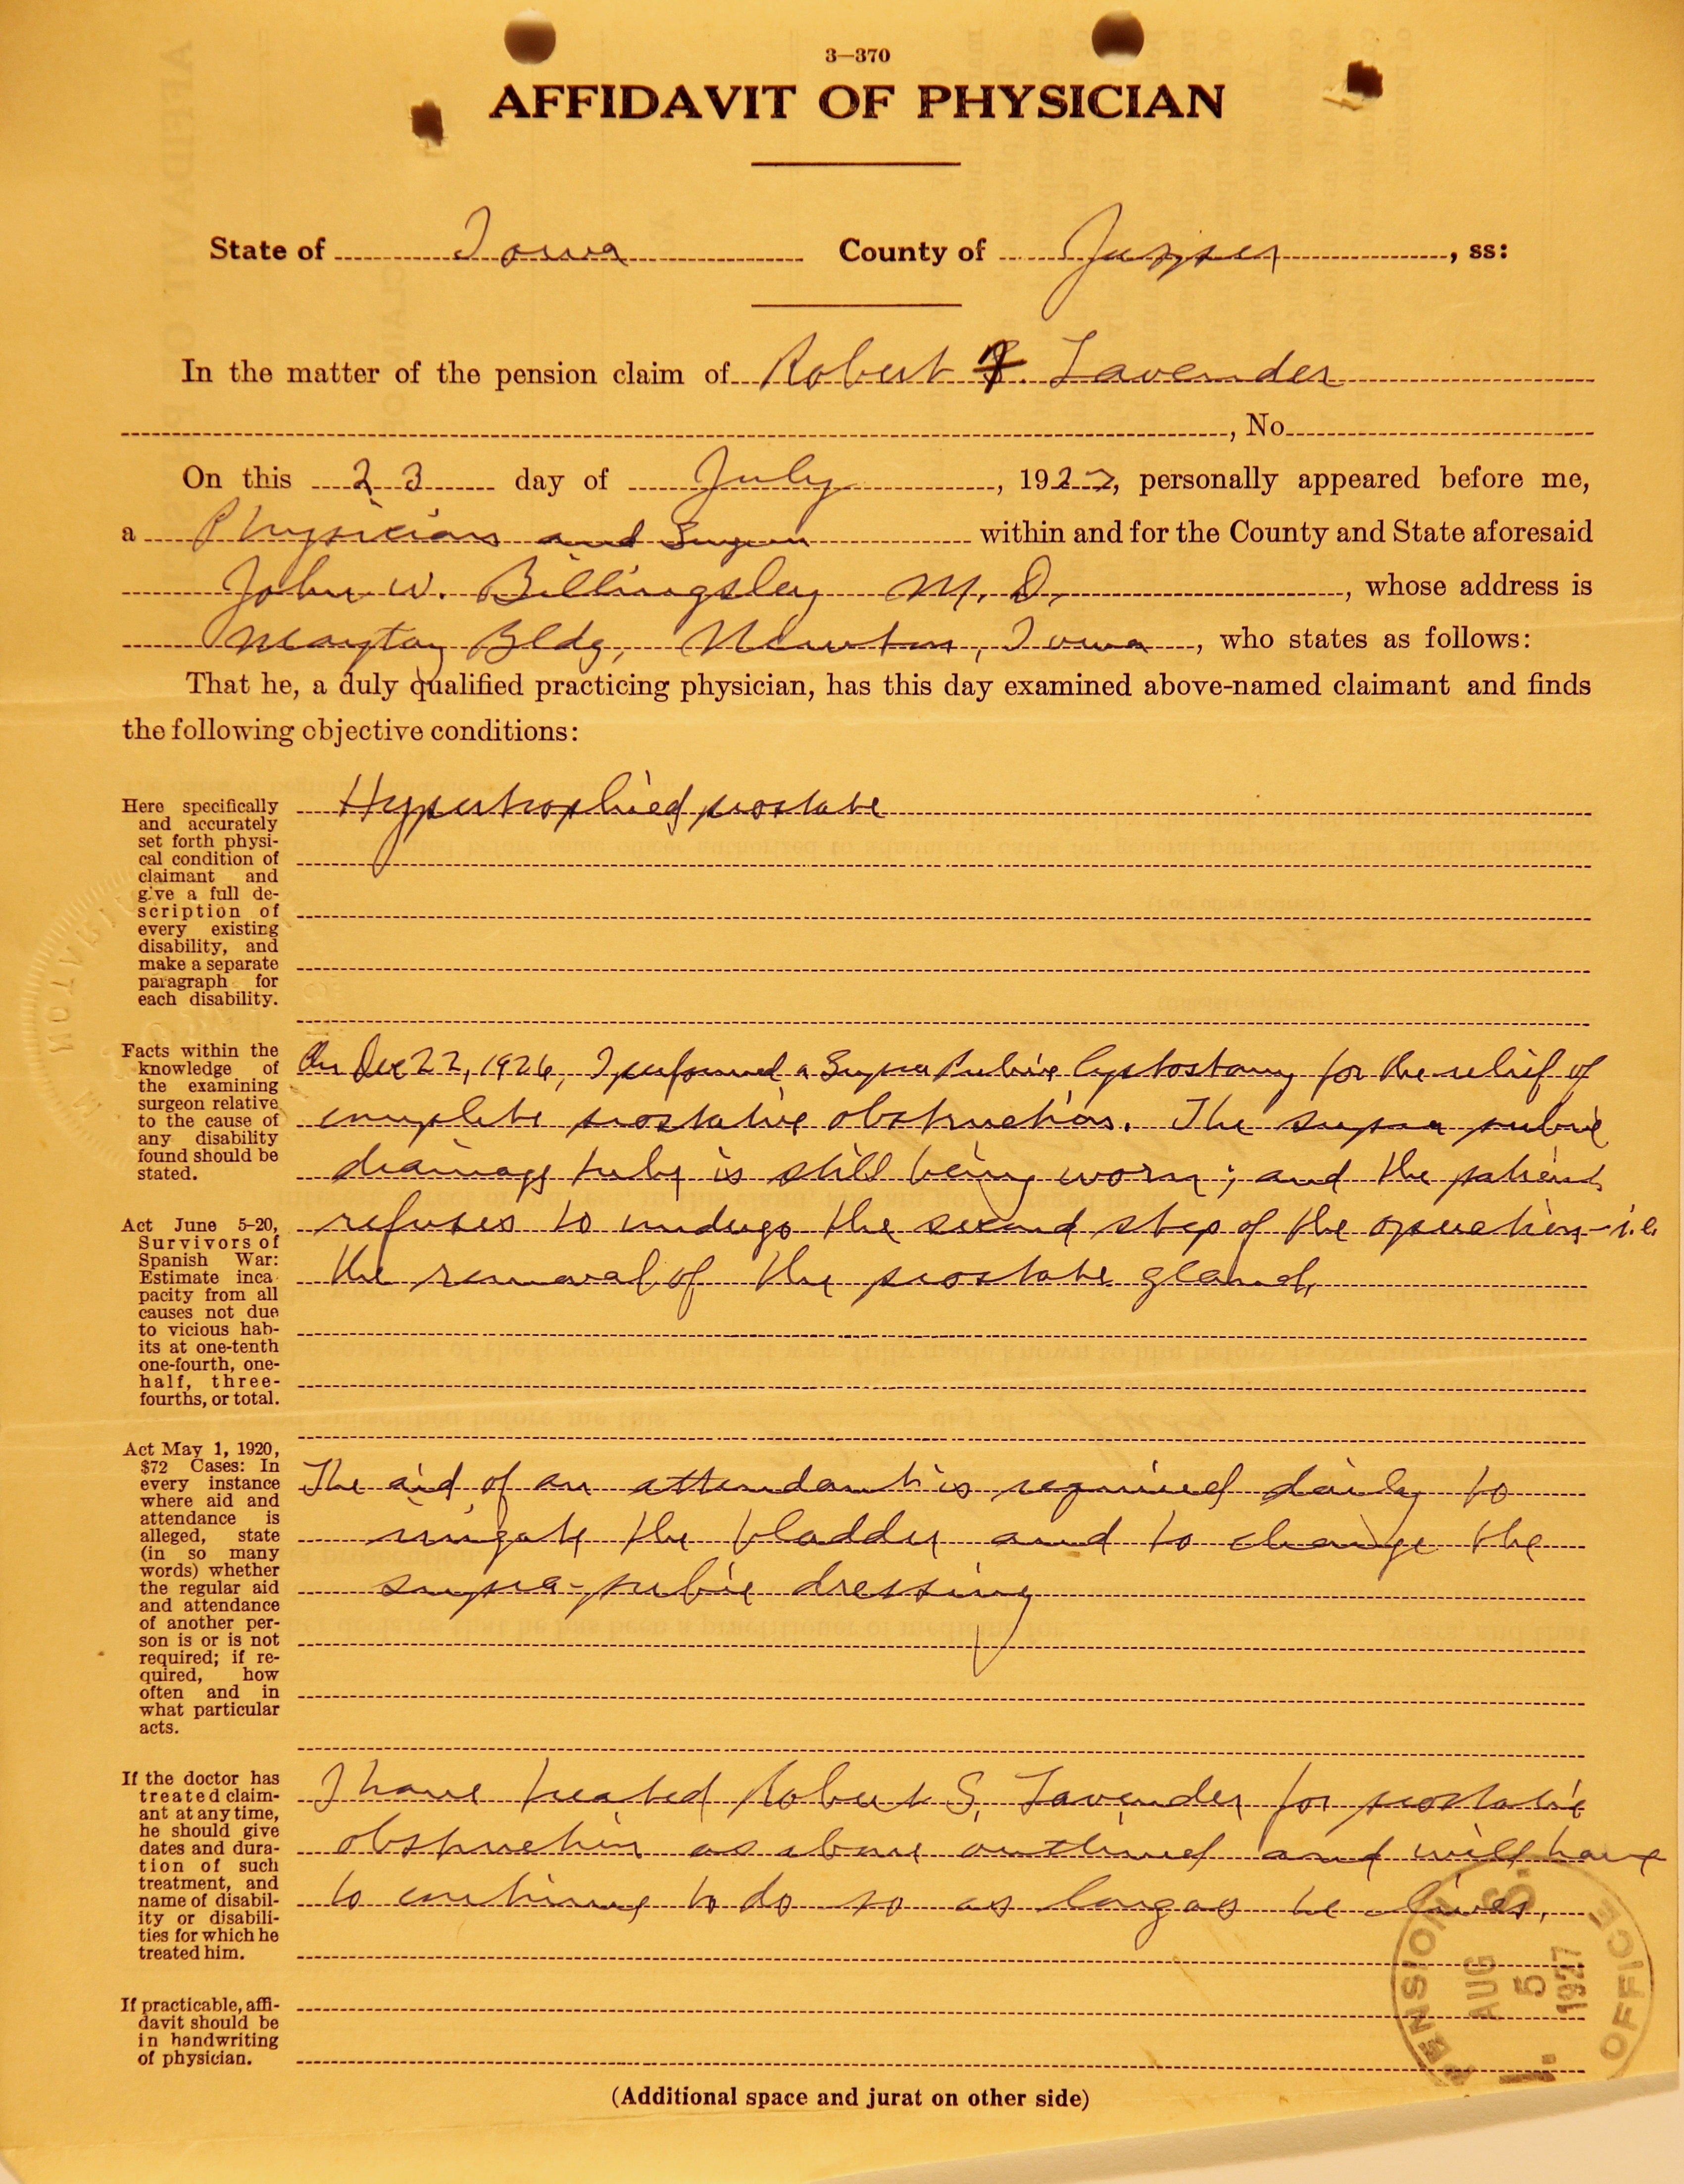 3—370
AFFIDAVIT OF PHYSICIAN
State of Iowa County of Jasper, ss:
In the matter of the pension claim of Robert Lavender
, No.
On this 23 day of July, 1927, personally appeared before me,
a Physician and Surgeon within and for the County and State aforesaid
John W. Billingsley M. D., whose address is
Maytag Bldg, Newton, Iowa, who states as follows:
That he, a duly qualified practicing physician, has this day examined above-named claimant and finds
the following objective conditions:
Here specifically
and accurately
set forth physi-
cal condition of
claimant and
give a full de-
scription of
every existing
disability, and
make a separate
paragraph for
each disability.
Hypertrophied prostate
Facts within the
knowledge of
the examining
surgeon relative
to the cause of
any disability
found should be
stated.
Act June 5-20,
Survivors of
Spanish War:
Estimate inca-
pacity from all
causes not due
to vicious hab-
its at one-tenth
one-fourth, one-
half, three-
fourths, or total.
On Dec 22, 1926, I performed a Supra Pubic Cystostomy for the relief of
complete prostatic obstruction. The supra pubic
drainage tube is still being worn; and the patient
refuses to undergo the second step of the operation - i.e.
the removal of the prostate gland.
Act May 1, 1920,
$72 Cases: In
every instance
where aid and
attendance is
alleged, state
(in so many
words) whether
the regular aid
and attendance
of another per-
son is or is not
required; if re-
quired, how
often and in
what particular
acts.
The aid of an attendant is required daily to
irrigate the bladder and to change the
supra-pubic dressing
If the doctor has
treated claim-
ant at any time,
he should give
dates and dura-
tion of such
treatment, and
name of disabil-
ity or disabili-
ties for which he
treated him.
I have treated Robert S. Lavender for prostatic
obstruction as above outlined and will have
to continue to do so as long as he lives.
If practicable, affi-
davit should be
in handwriting
of physician.
U. S. PENSION OFFICE
AUG 5 1927
(Additional space and jurat on other side)